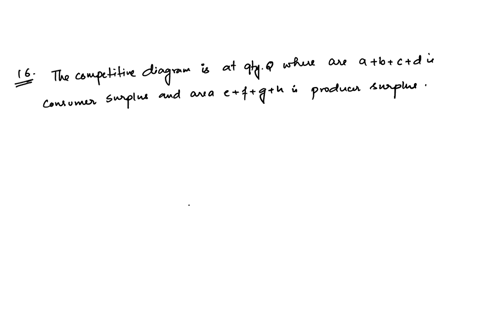 16. The competitive diagram is at qty. Q where are a+b+c+d is
consumer surplus and area e+f+g+h is producer surplus.